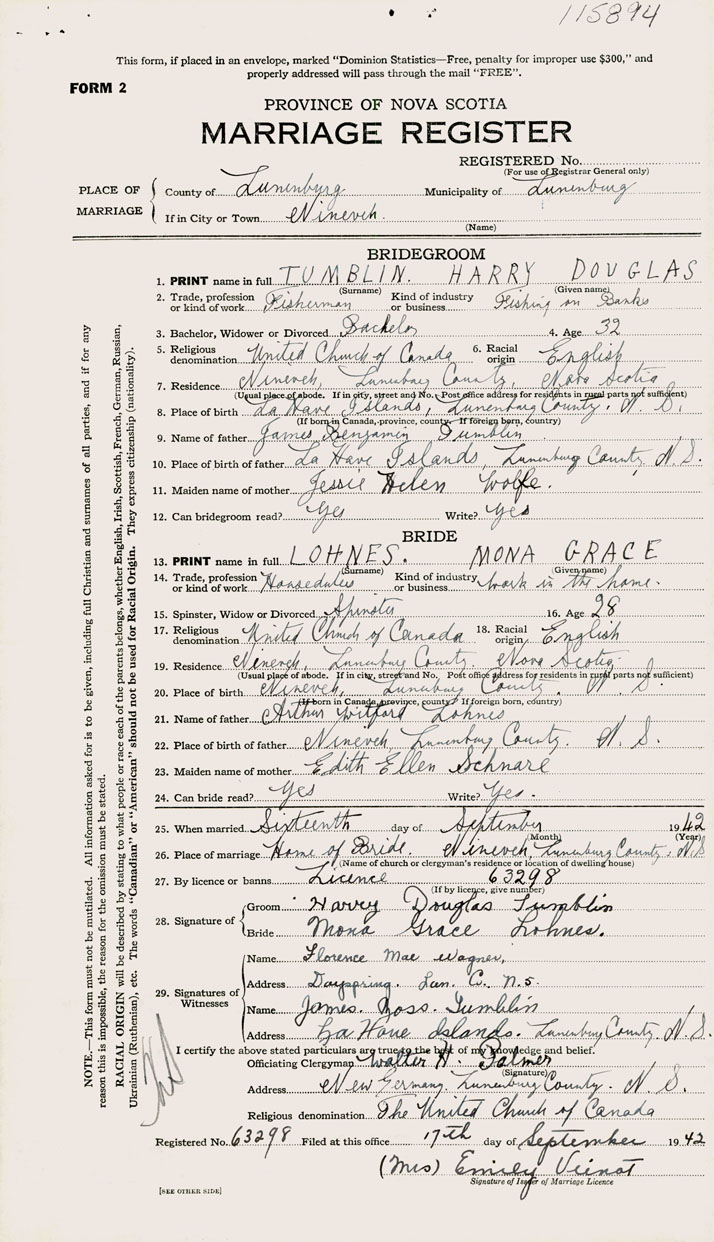 115894
This form, if placed in an envelope, marked "Dominion Statistics—Free, penalty for improper use $300," and
properly addressed will pass through the mail "FREE".
FORM 2
PROVINCE OF NOVA SCOTIA
MARRIAGE REGISTER
REGISTERED No.
(For use of Registrar General only)
PLACE OF MARRIAGE
County of Lunenburg Municipality of Lunenburg
If in City or Town Nineveh.
(Name)
BRIDEGROOM
1. PRINT name in full TUMBLIN. HARRY DOUGLAS
(Surname) (Given name)
2. Trade, profession or kind of work Fisherman Kind of industry or business Fishing on Banks
3. Bachelor, Widower or Divorced Bachelor 4. Age 32
5. Religious denomination United Church of Canada 6. Racial origin English
7. Residence Nineveh, Lunenburg County, Nova Scotia
(Usual place of abode. If in city, street and No. Post office address for residents in rural parts not sufficient)
8. Place of birth La Have Islands, Lunenburg County. N. S.
(If born in Canada, province, county. If foreign born, country)
9. Name of father James Benjamin Tumblin
10. Place of birth of father La Have Islands, Lunenburg County N. S.
11. Maiden name of mother Jessie Helen Wolfe.
12. Can bridegroom read? Yes Write? Yes
BRIDE
13. PRINT name in full LOHNES. MONA GRACE
(Surname) (Given name)
14. Trade, profession or kind of work Houseduties Kind of industry or business work in the home.
15. Spinster, Widow or Divorced Spinster 16. Age 28
17. Religious denomination United Church of Canada 18. Racial origin English
19. Residence Nineveh, Lunenburg County. Nova Scotia.
(Usual place of abode. If in city, street and No. Post office address for residents in rural parts not sufficient)
20. Place of birth Nineveh, Lunenburg County. N. S.
(If born in Canada, province, county. If foreign born, country)
21. Name of father Arthur Witford Lohnes
22. Place of birth of father Nineveh, Lunenburg County. N. S.
23. Maiden name of mother Edith Ellen Schnare
24. Can bride read? Yes Write? Yes.
25. When married Sixteenth day of September 1942
(Month) (Year)
26. Place of marriage Home of Bride. Nineveh, Lunenburg County. N.S
(Name of church or clergyman's residence or location of dwelling house)
27. By licence or banns Licence 63298
(If by licence, give number)
28. Signature of
Groom Harvey Douglas Tumblin
Bride Mona Grace Lohnes.
29. Signatures of Witnesses
Name Florence Mae Wagner,
Address Dayspring. Lun. C. N.S.
Name James. Ross. Tumblin
Address La Have Islands. Lunenburg County. N. S.
I certify the above stated particulars are true to the best of my knowledge and belief.
Officiating Clergyman Walter H. Palmer
(Signature)
Address New Germany. Lunenburg County. N. S.
Religious denomination The United Church of Canada
Registered No. 63298 Filed at this office 17th day of September 1942
(Mrs) Emily Veinot
Signature of Issuer of Marriage Licence
[SEE OTHER SIDE]
NOTE.—This form must not be mutilated. All information asked for is to be given, including full Christian and surnames of all parties, and if for any
reason this is impossible, the reason for the omission must be stated.
RACIAL ORIGIN will be described by stating to what people or race each of the parents belongs, whether English, Irish, Scottish, French, German, Russian,
Ukrainian (Ruthenian), etc. The words "Canadian" or "American" should not be used for Racial Origin. They express citizenship (nationality).